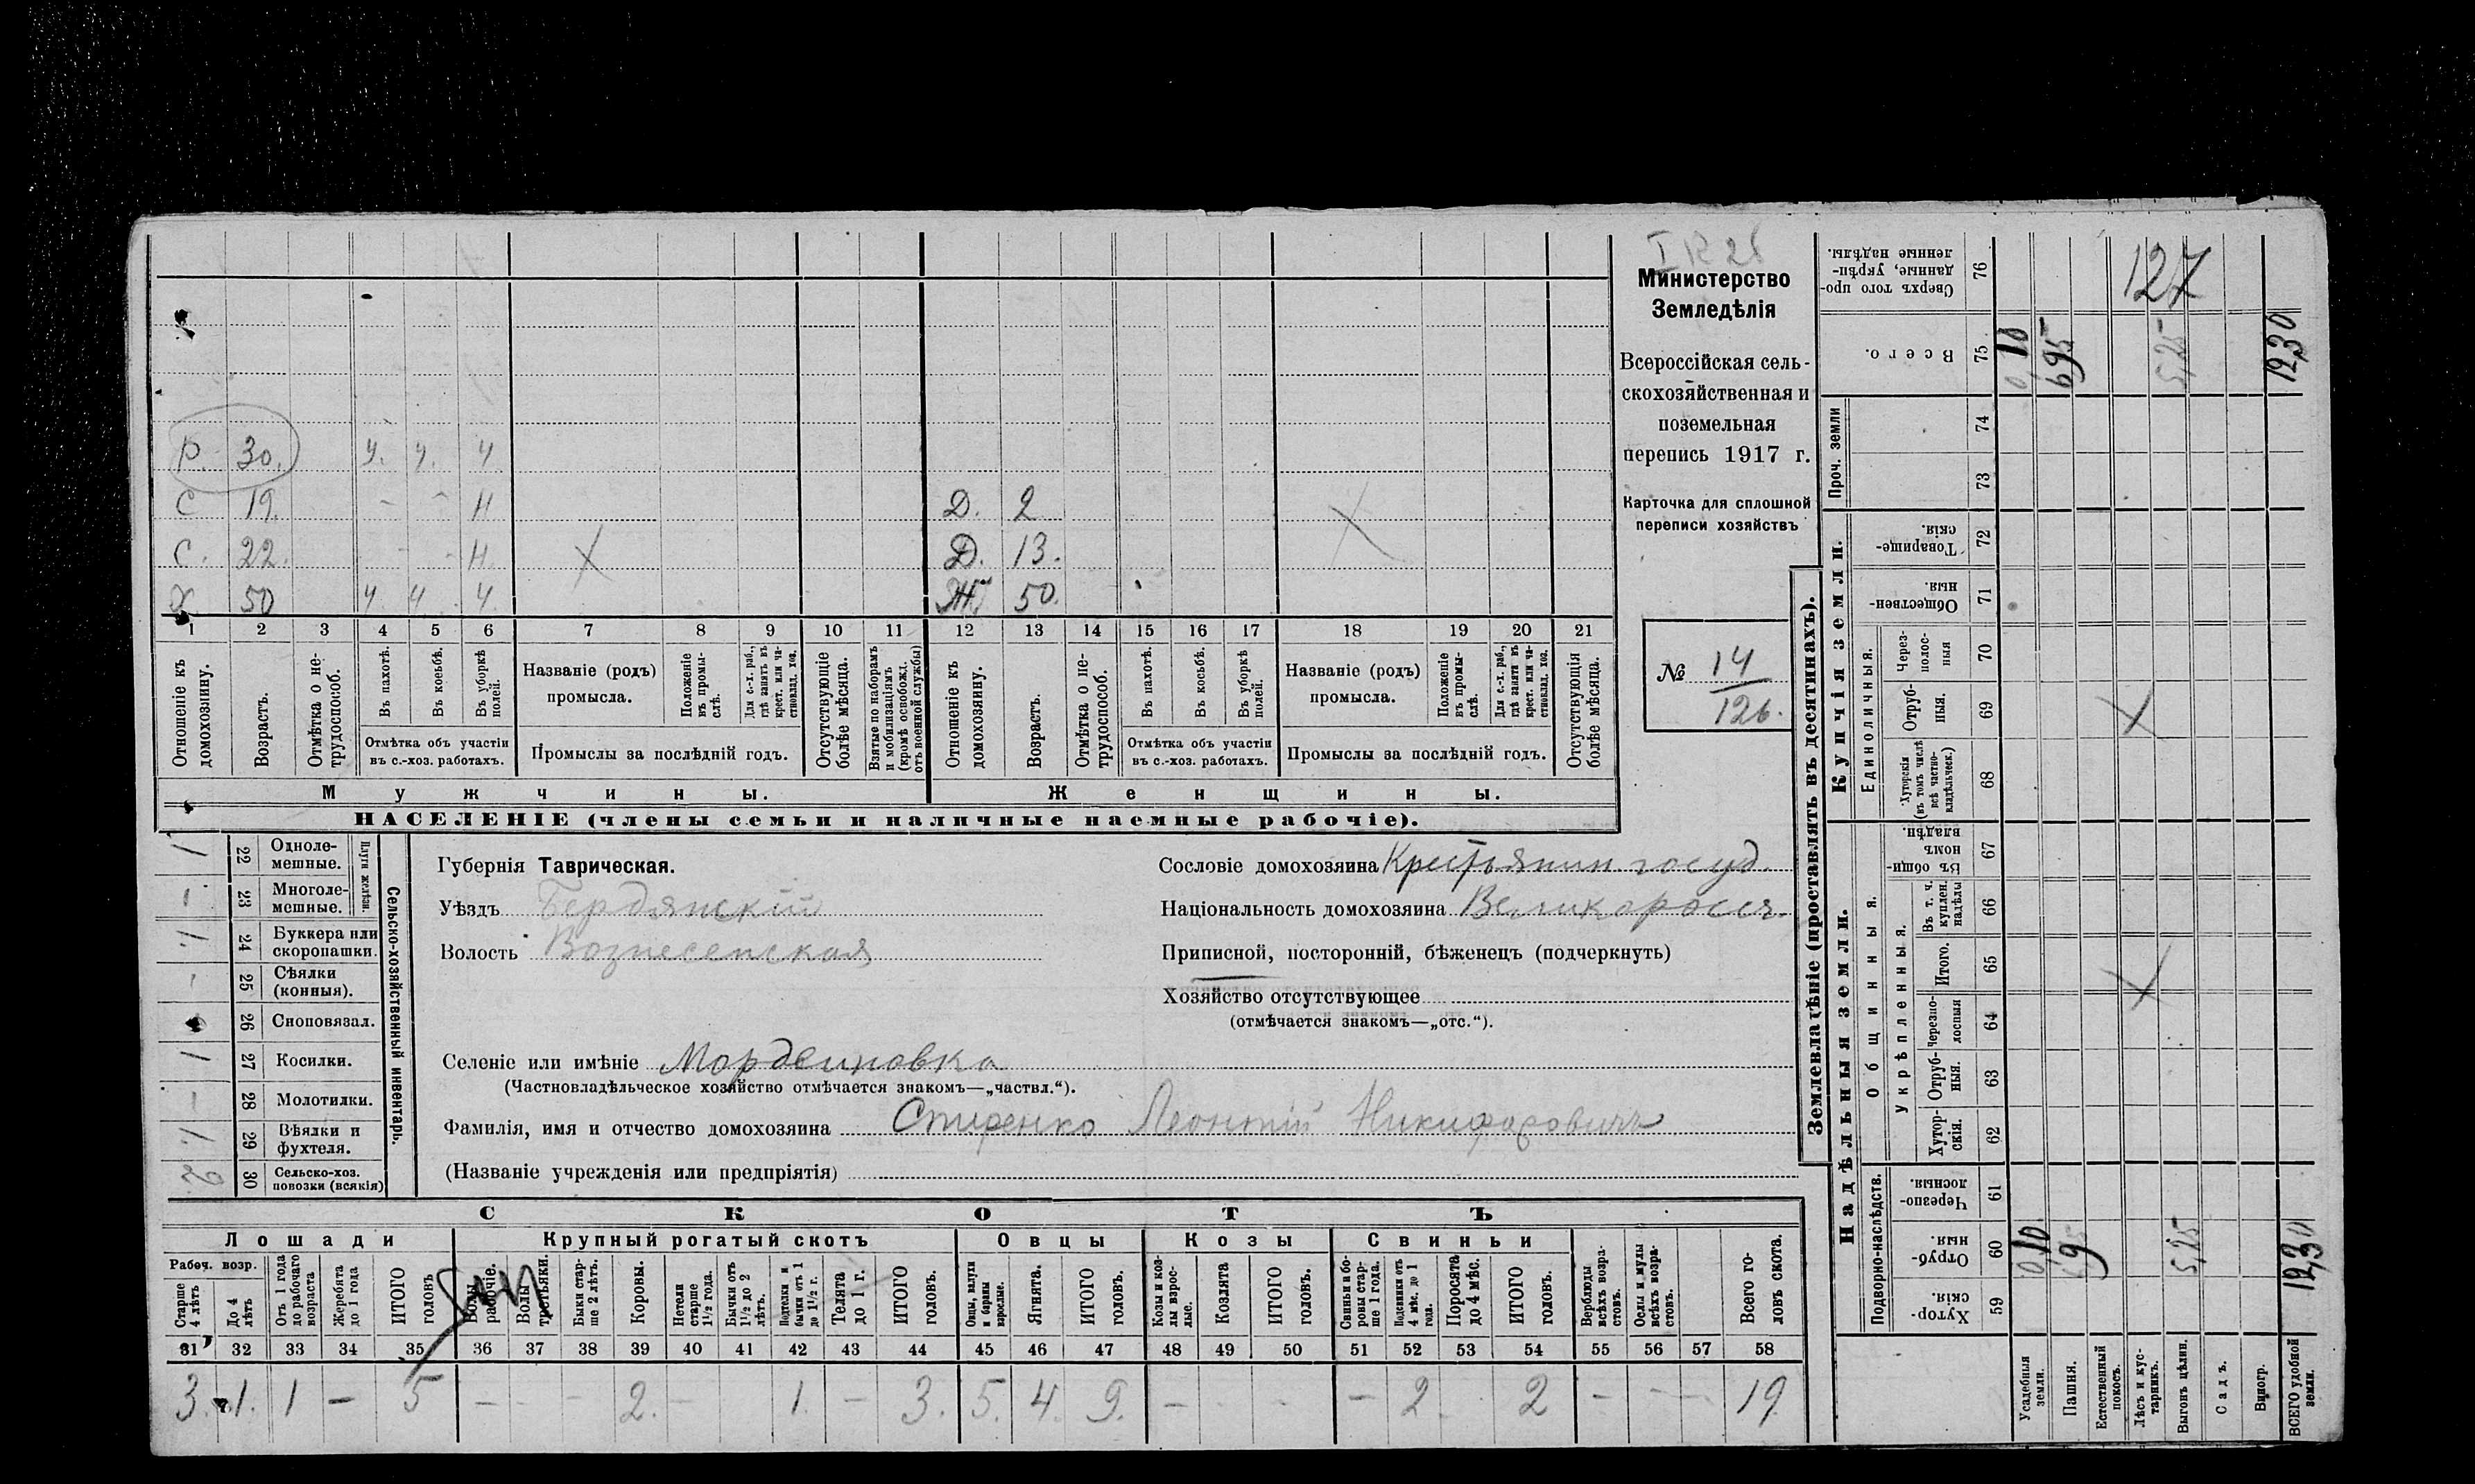 Р. 30. ч. ч. ч
С 19. - - н
Д. 2
С. 22. - - н.
Д. 13.
Х. 50 ч ч ч.
Ж 50.
1 2 3 4 5 6 7 8 9 10 11 12 13 14 15 16 17 18 19 20 21
Отношеніе къ домохозяину.
Возрастъ.
Отмѣтка о не-трудоспособ.
Въ пахотѣ.
Въ косьбѣ.
Въ уборкѣ полей.
Отмѣтка объ участіи
въ с.-хоз. работахъ.
Названіе (родъ)
промысла.
Положеніе въ промы-слѣ.
Для с.-х. раб., гдѣ занятъ въ крест. или ча-стновлад. хоз.
Промыслы за послѣдній годъ.
Отсутствующіе болѣе мѣсяца.
Взятые по наборамъ и мобилизаціямъ (кромѣ освобожд. отъ военной службы)
Отношеніе къ домохозяину.
Возрастъ.
Отмѣтка о не-трудоспособ.
Въ пахотѣ.
Въ косьбѣ.
Въ уборкѣ полей.
Отмѣтка объ участіи
въ с.-хоз. работахъ.
Названіе (родъ)
промысла.
Положеніе въ промы-слѣ.
Для с.-х. раб., гдѣ заняты въ крест. или ча-стновлад. хоз.
Промыслы за послѣдній годъ.
Отсутствующія болѣе мѣсяца.
Мужчины.
Женщины.
НАСЕЛЕНІЕ (члены семьи и наличные наемные рабочіе).
Министерство
Земледѣлія
Всероссійская сель-
скохозяйственная и
поземельная
перепись 1917 г.
Карточка для сплошной
переписи хозяйствъ
№ 14
126.
1 22 Одноле-мешные.
- 23 Многоле-мешные.
Плуги желѣзн.
1. 24 Буккера или скоропашки.
- 25 Сѣялки (конныя).
26 Сноповязал.
1 27 Косилки.
- 28 Молотилки.
1. 29 Вѣялки и фухтеля.
2 30 Сельско-хоз. повозки (всякія)
Сельско-хозяйственный инвентарь.
Губернія Таврическая.
Уѣздъ Бердянскій
Волость Вознесенская
Сословіе домохозяина Крестьянин. госуд.
Національность домохозяина Великоросс.
Приписной, посторонній, бѣженецъ (подчеркнуть)
Хозяйство отсутствующее
(отмѣчается знакомъ—„отс.“).
Селеніе или имѣніе Мордвиновка
(Частновладѣльческое хозяйство отмѣчается знакомъ—„частвл.“).
Фамилія, имя и отчество домохозяина Спиренко Леонтій Никифоровичъ
(Названіе учрежденія или предпріятія)
СКОТЪ
Лошади
Крупный рогатый скотъ
Овцы
Козы
Свиньи
Рабоч. возр.
Старше 4 лѣтъ
До 4 лѣтъ
Отъ 1 года до рабочаго возраста
Жеребята до 1 года
ИТОГО головъ
Волы рабочіе.
Волы третьяки.
Быки стар-ше 2 лѣтъ.
Коровы.
Нетели старше 1½ года.
Бычки отъ 1½ до 2 лѣтъ.
Подтелки и бычки отъ 1 до 1½ г.
Телята до 1 г.
ИТОГО головъ.
Овцы, валухи и бараны взрослые.
Ягнята.
ИТОГО головъ.
Козы и коз-лы взрос-лые.
Козлята
ИТОГО головъ.
Свиньи и бо-ровы стар-ше 1 года.
Подсвинки отъ 4 мѣс. до 1 года.
Поросята до 4 мѣс.
ИТОГО головъ.
Верблюды всѣхъ возра-стовъ.
Ослы и мулы всѣхъ возра-стовъ.
Всего го-ловъ скота.
31 32 33 34 35 36 37 38 39 40 41 42 43 44 45 46 47 48 49 50 51 52 53 54 55 56 57 58
3. 1. 1 - 5 - - - 2. - 1. - 3. 5. 4. 9. - - - - 2. 2 - - 19
Землевладѣніе (проставлять въ десятинахъ).
Надѣльныя земли.
Купчія земли.
Проч. земли
Подворно-наслѣдств.
Общинныя.
Укрѣпленныя.
Единоличныя.
Сверхъ того про-данные, укрѣп-ленные надѣлы. 76
127
Всего. 75 0,10 6,95 5,25 12,30
74
73
Товарище-скія. 72
Обществен-ныя. 71
Через-полос-ныя 70
Отруб-ныя. 69
Хуторскія (въ томъ числѣ всѣ частно-владѣльческ.) 68
Въ общин-номъ владѣн. 67
Въ т. ч. куплен. надѣлы 66
Итого. 65
Черезпо-лосныя 64
Отруб-ныя. 63
Хутор-скія. 62
Черезпо-лосныя. 61
Отруб-ныя. 60 0,10 6,95 5,25 12,30
Хутор-скія. 59
Усадебныя земли.
Пашня.
Естественный покосъ.
Лѣсъ и кус-тарникъ.
Выгонъ цѣлин.
Садъ.
Виногр.
ВСЕГО удобной земли.